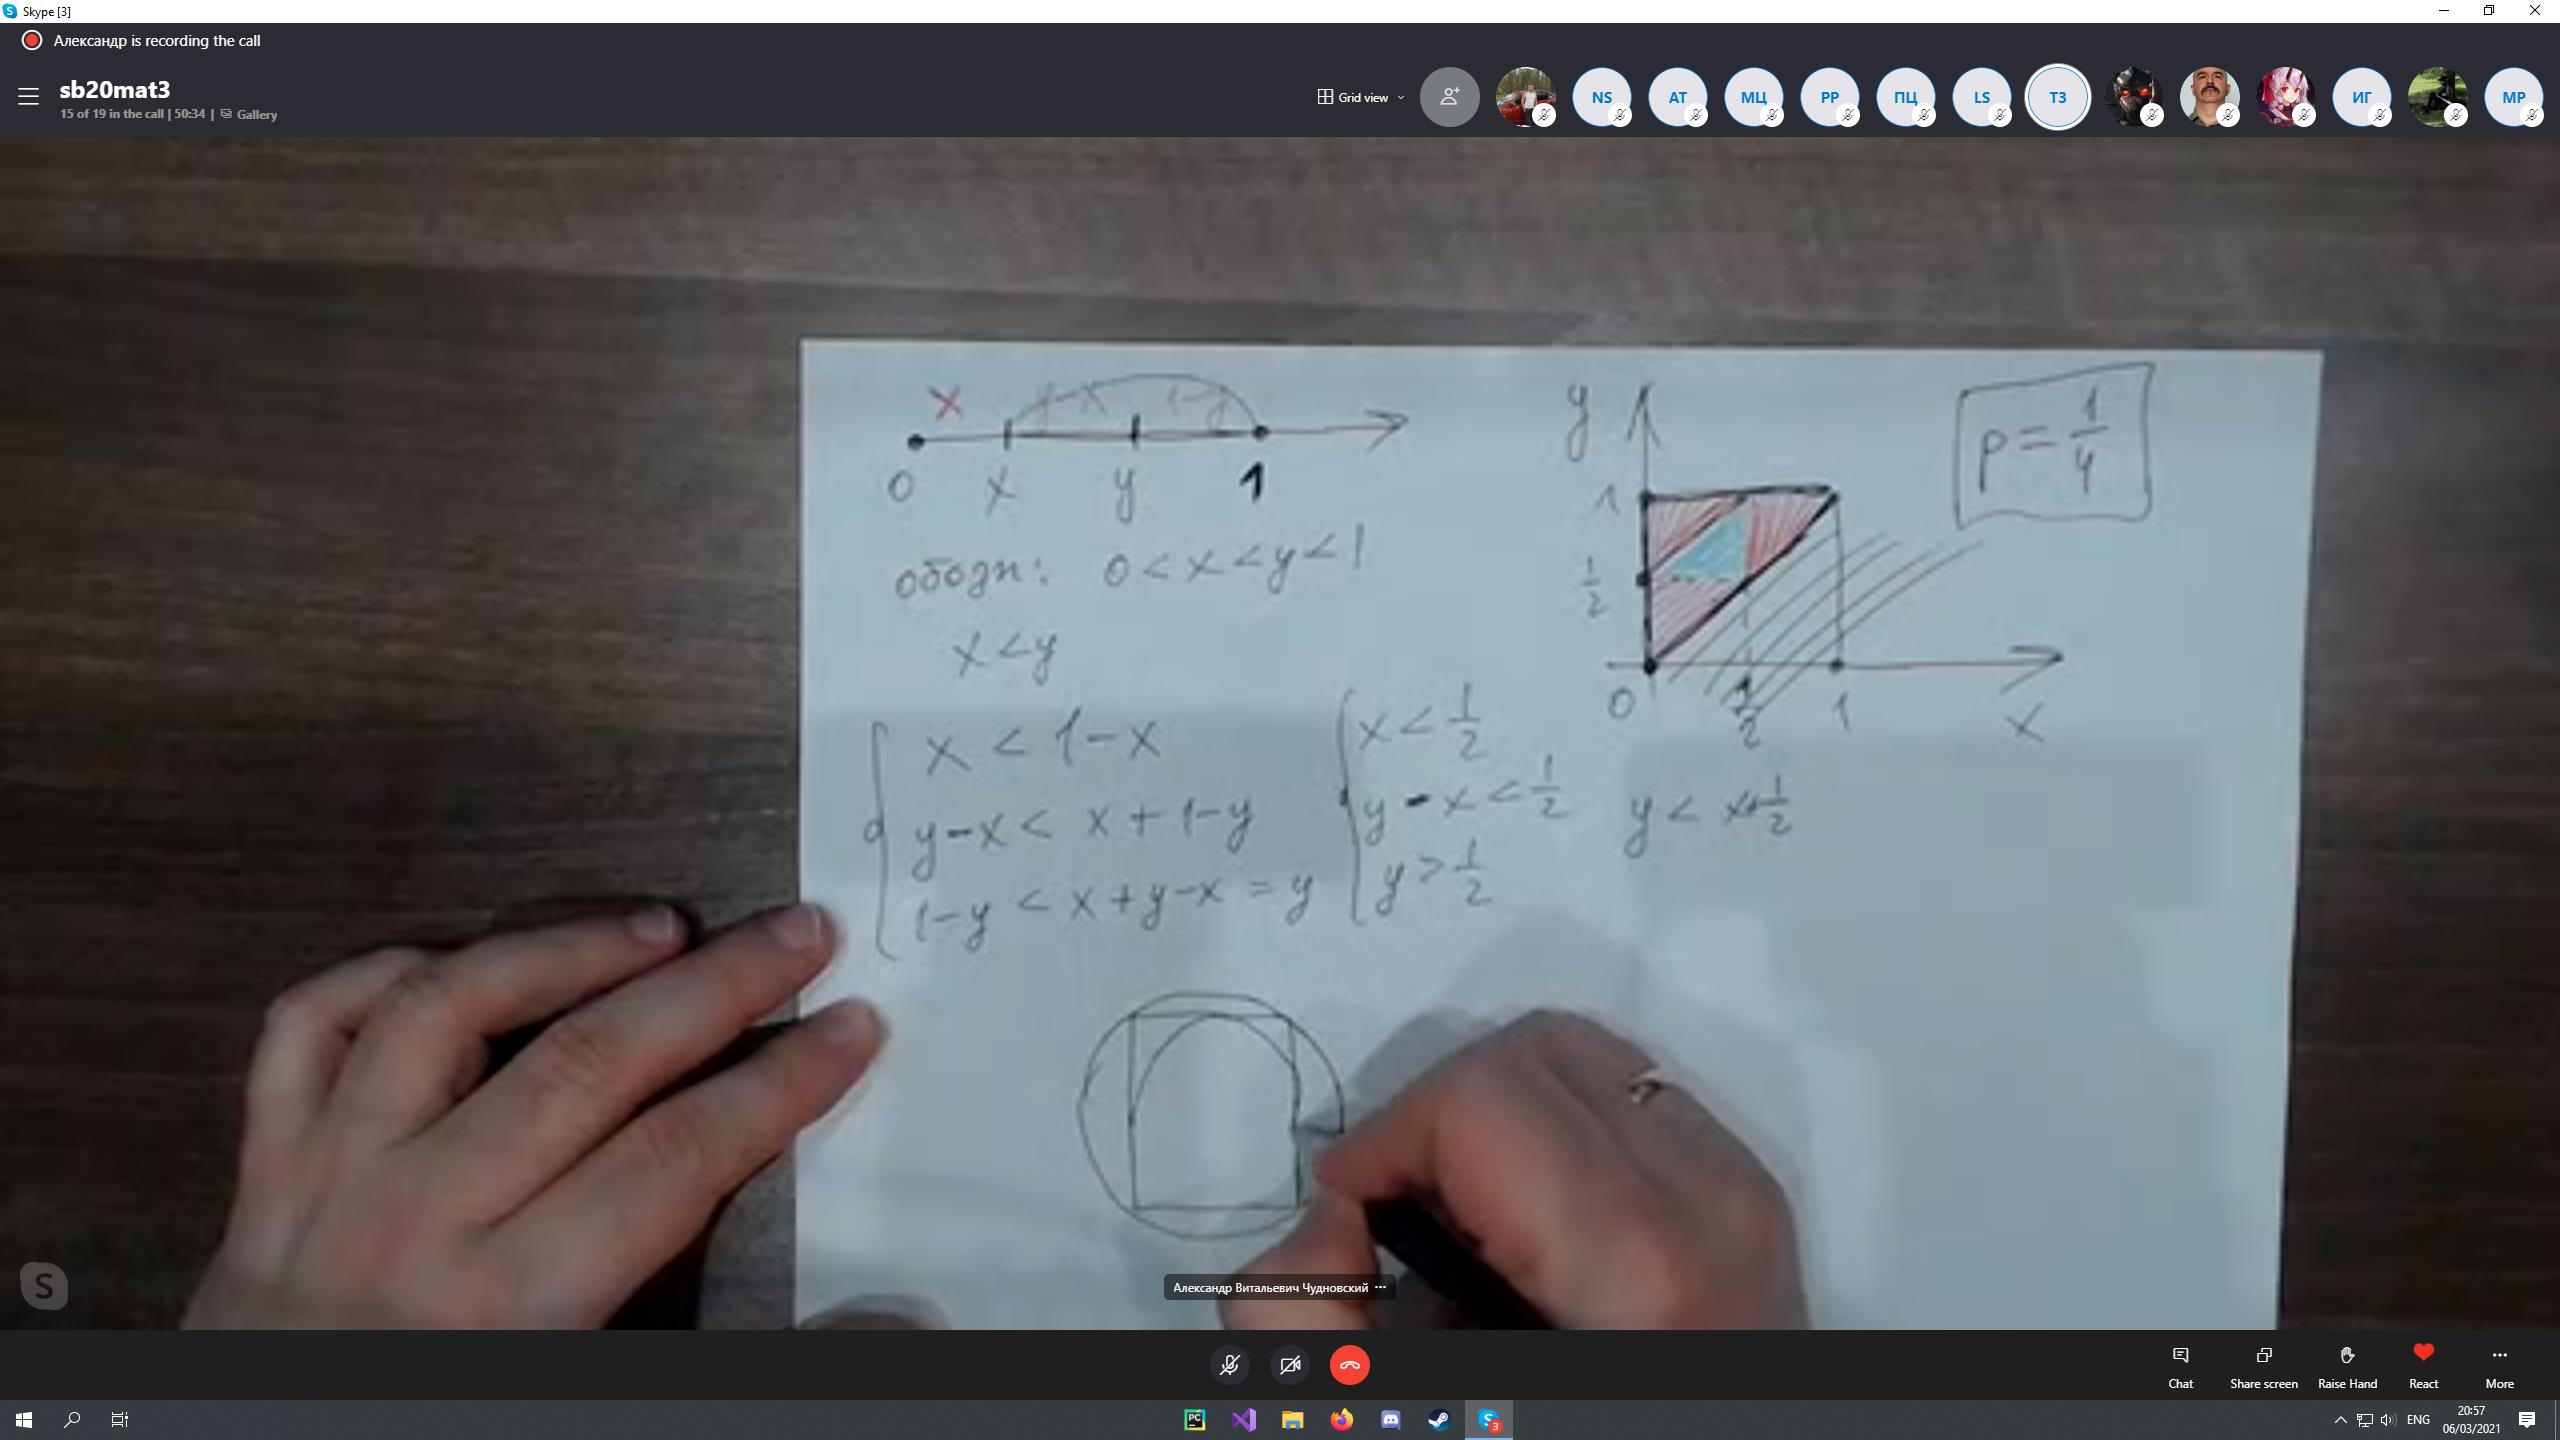 Skype [3]
Александр is recording the call
sb20mat3
15 of 19 in the call | 50:34 | Gallery
Grid view
NS
AT
МЦ
PP
ПЦ
LS
ТЗ
ИГ
MP
x y-x 1-y
0 x y 1
обозн: 0 < x < y < 1
x < y
x < 1-x
y-x < x + 1-y
1-y < x + y-x = y
x < 1/2
y - x < 1/2
y > 1/2
y < x+1/2
y
1
1/2
0 1/2 1 x
p = 1/4
Александр Витальевич Чудновский
Chat
Share screen
Raise Hand
React
More
PC
S
3
ENG
20:57
06/03/2021